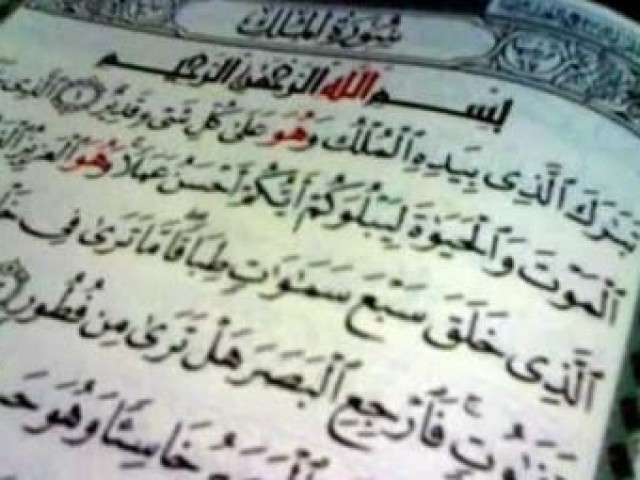 سُورَةُ المُلْك
بِسْمِ اللَّهِ الرَّحْمَٰنِ الرَّحِيمِ
تَبَٰرَكَ ٱلَّذِى بِيَدِهِ ٱلْمُلْكُ وَهُوَ عَلَىٰ كُلِّ شَىْءٍ قَدِيرٌ ١ ٱلَّذِى
ٱلْمَوْتَ وَٱلْحَيَوٰةَ لِيَبْلُوَكُمْ أَيُّكُمْ أَحْسَنُ عَمَلًا وَهُوَ ٱلْعَزِيزُ
ٱلَّذِى خَلَقَ سَبْعَ سَمَٰوَٰتٍ طِبَاقًا مَّا تَرَىٰ فِى
فَٱرْجِعِ ٱلْبَصَرَ هَلْ تَرَىٰ مِن فُطُورٍ
خَاسِئًا وَهُوَ